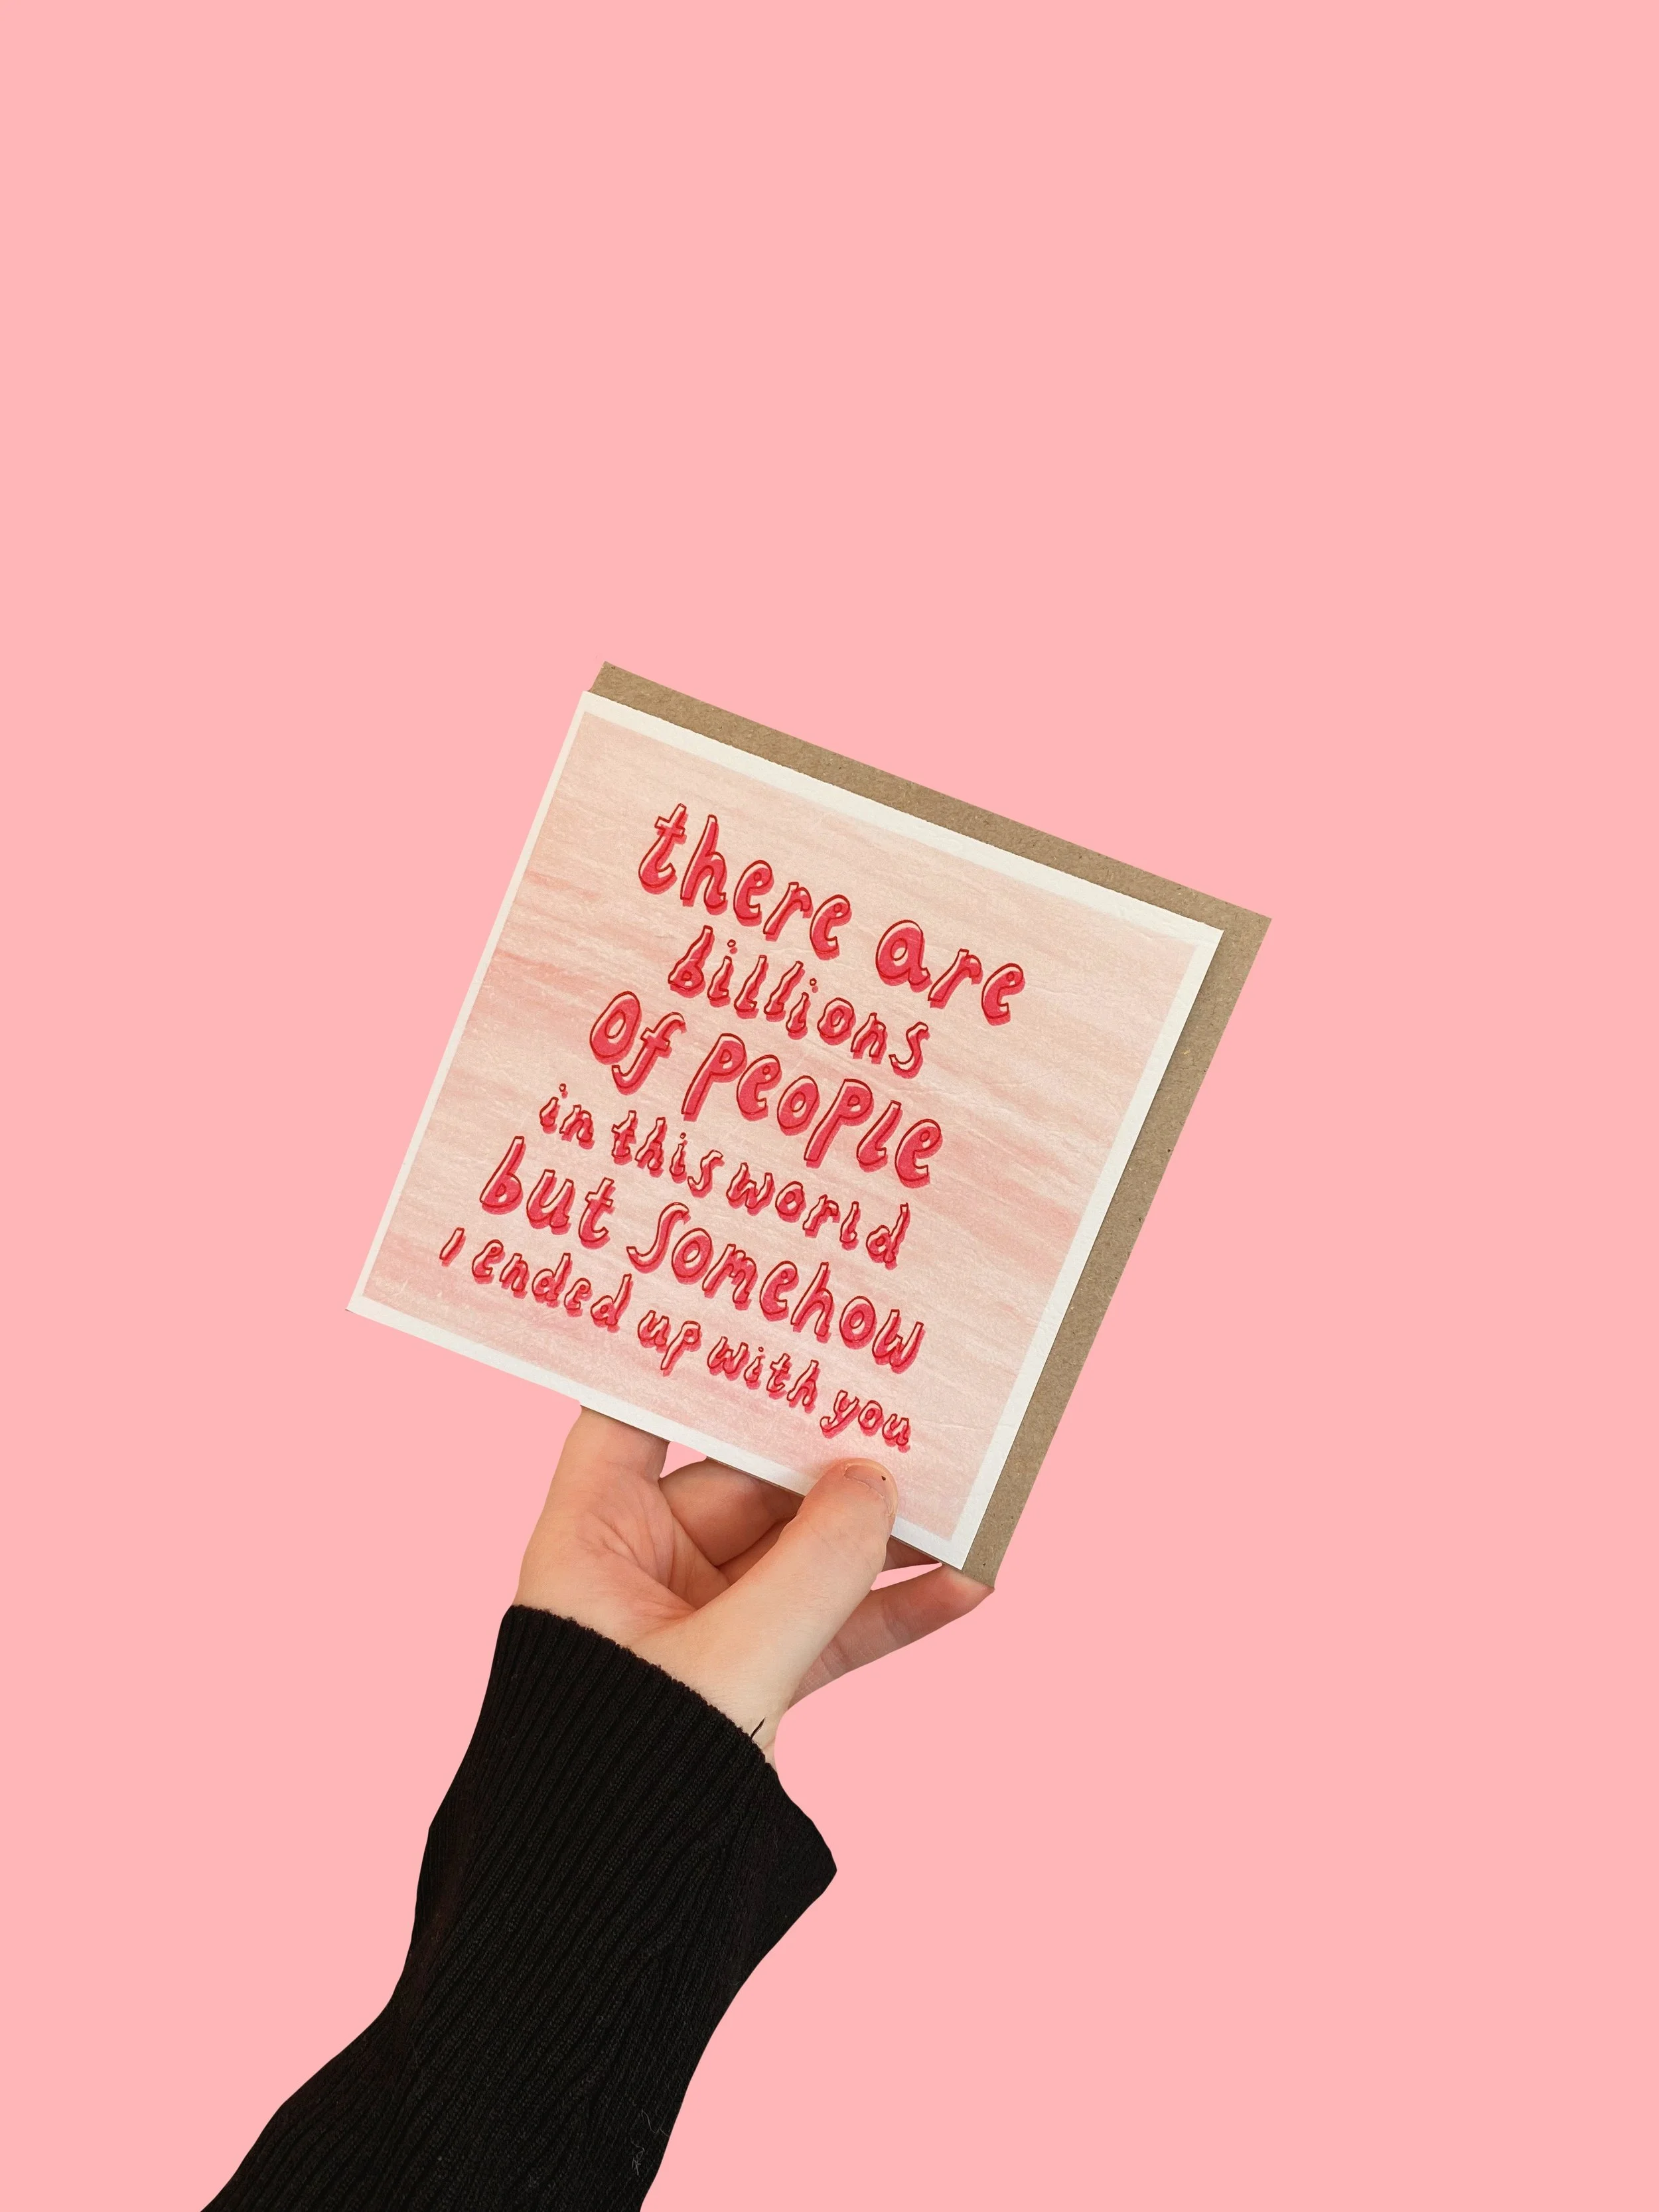 there are
billions
of people
in this world
but somehow
I ended up with you